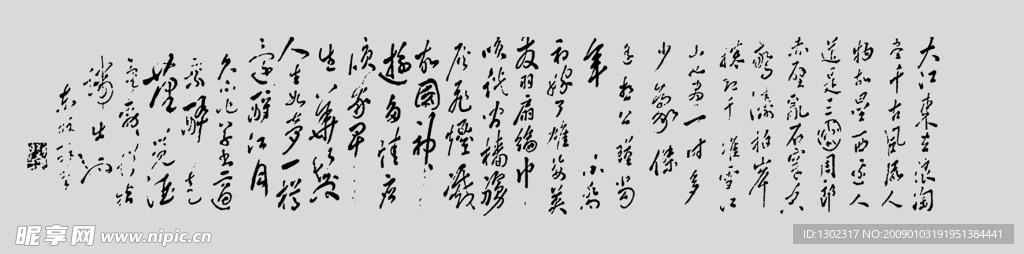 大江東去浪淘
盡千古風流人
物故壘西邊人
道是三國周郎
赤壁亂石穿空
驚濤拍岸
捲起千堆雪江
山如畫一時多
少豪傑
遙想公瑾當
年 小喬
初嫁了雄姿英
發羽扇綸巾
笑談間檣艣
灰飛煙滅
故國神
遊多情應
笑我早
生華髮
人生如夢一樽
還酹江月
久不作草書適
乘醉走
筆覺酒
氣勃勃從指
端出也
東坡醉筆
昵享网 www.nipic.cn
ID:1302317 NO:20090103191951384441